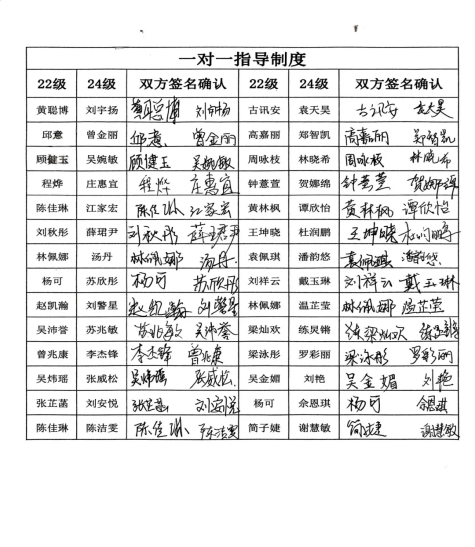 一对一指导制度
22级 24级 双方签名确认 22级 24级 双方签名确认
黄聪博 刘宇扬 黄聪博 刘宇扬 古讯安 袁天昊 古讯安 袁天昊
邱薏 曾金丽 邱薏 曾金丽 高嘉丽 郑智凯 高嘉丽 郑智凯
顾健玉 吴婉敏 顾健玉 吴婉敏 周咏枝 林晓希 周咏枝
程烨 庄惠宜 程烨 庄惠宜 钟薏萱 贺娜绵 钟薏萱 贺娜绵
陈佳琳 江家宏 陈佳琳 江家宏 黄林枫 谭欣怡 黄林枫 谭欣怡
刘秋彤 薛珺尹 刘秋彤 薛珺尹 王坤晓 杜润鹏 王坤晓 杜润鹏
林佩娜 汤丹 林佩娜 汤丹 袁佩琪 潘韵悠 袁佩琪 潘韵悠
杨可 苏欣彤 杨可 苏欣彤 刘祥云 戴玉琳 刘祥云 戴玉琳
赵凯瀚 刘警星 赵凯瀚 刘警星 林佩娜 温芷莹 林佩娜 温芷莹
吴沛誉 苏兆敏 苏兆敏 吴沛誉 梁灿欢 练炅锵 梁灿欢
曾兆康 李杰锋 李杰锋 曾兆康 梁泳彤 罗彩丽 梁泳彤 罗彩丽
吴炜瑶 张威松 吴炜瑶 张威松 吴金媚 刘艳 吴金媚 刘艳
张芷菡 刘安悦 张芷菡 刘安悦 杨可 佘恩琪 杨可 佘恩琪
陈佳琳 陈洁雯 陈佳琳 陈洁雯 简子婕 谢慧敏 简子婕 谢慧敏